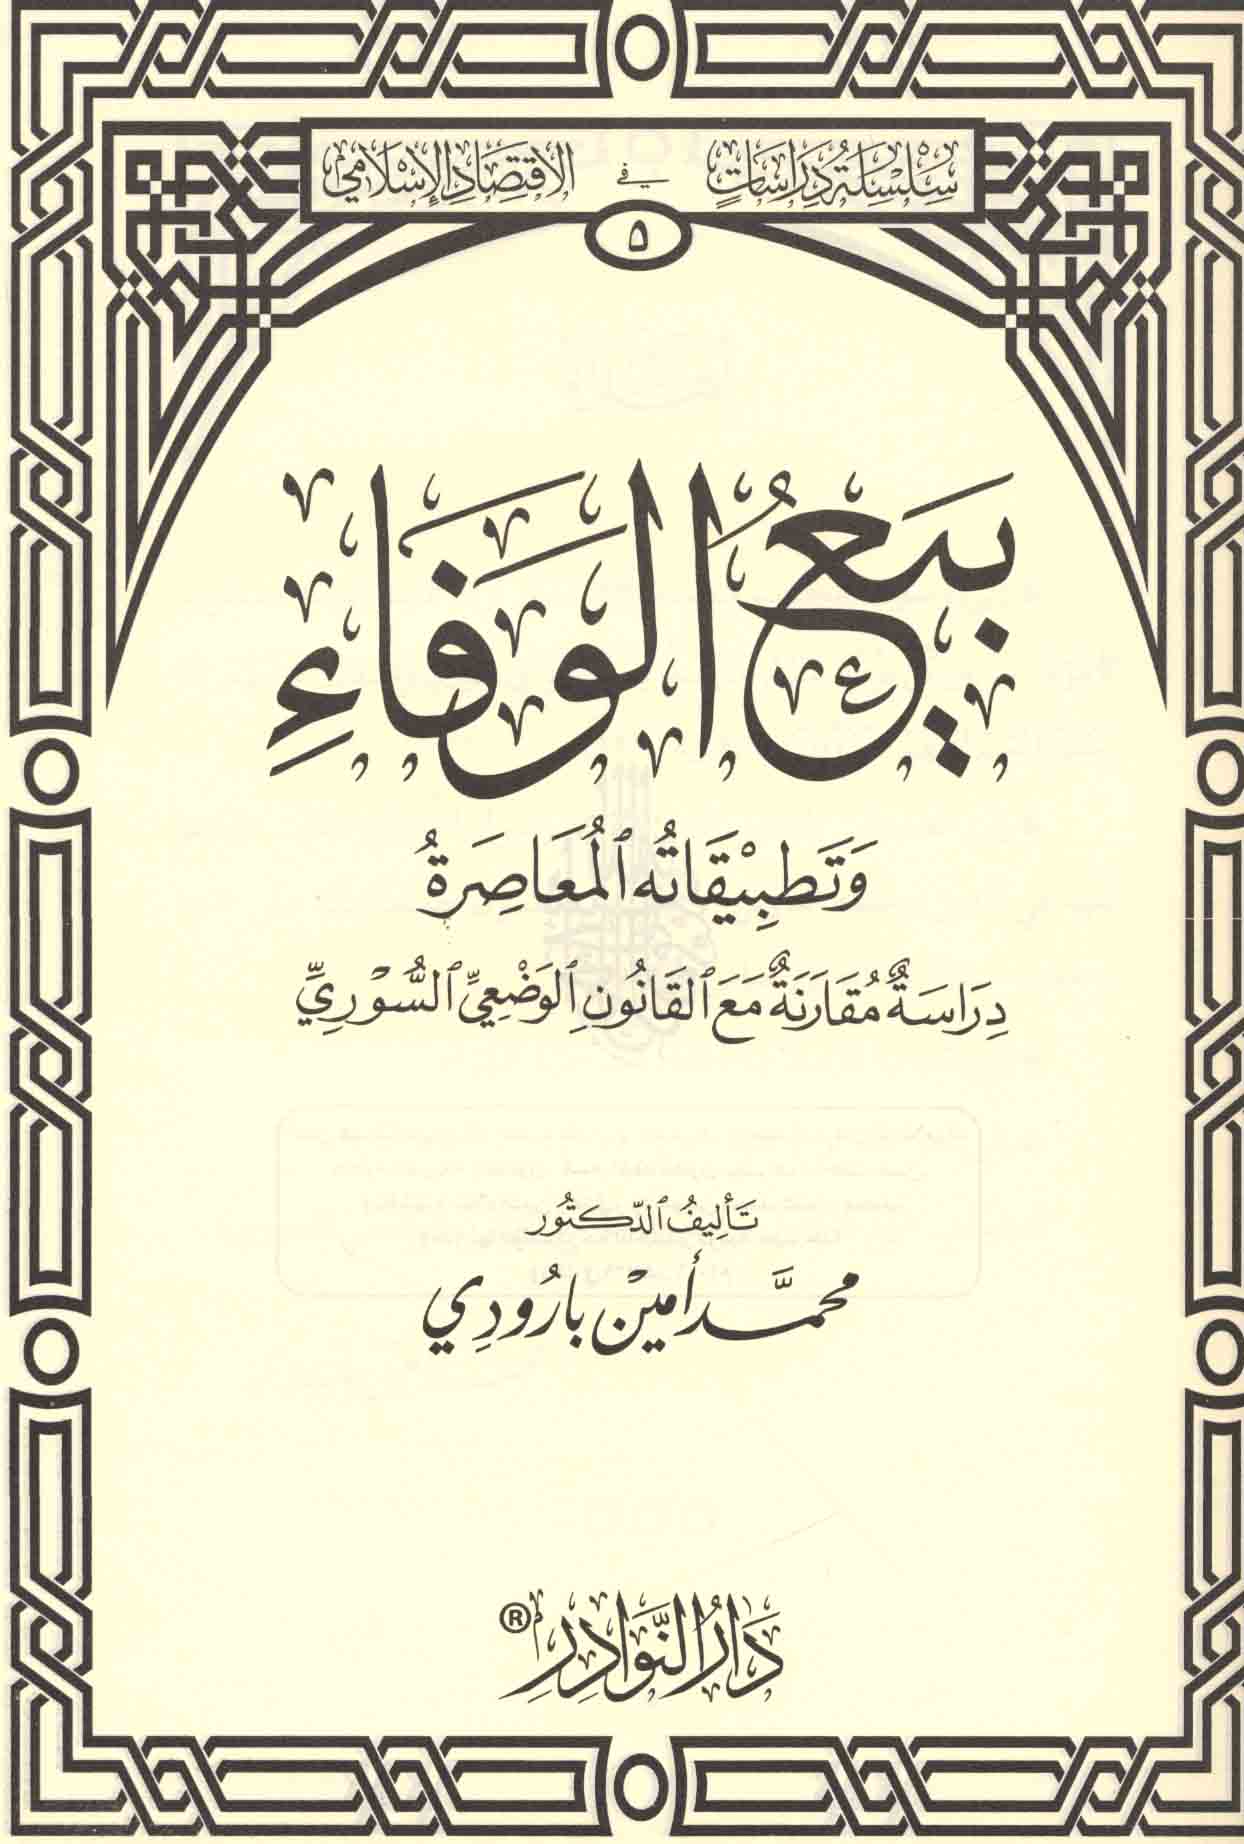 سِلْسِلَةُ دِرَاسَاتٍ في الاقتِصَادِ الإِسْلَامِيِّ
٥
بَيْعُ الوَفَاءِ
وَتَطبِيْقَاتُه ٱلمُعَاصِرَةُ
دِرَاسَةٌ مُقَارَنَةٌ مَعَ ٱلقَانُونِ ٱلوَضْعِيِّ ٱلسُّوْرِيِّ
تَأليفُ ٱلدّكتُور
محمَّد أمين بارُودِي
دَارُ النَّوَادِرِ ®